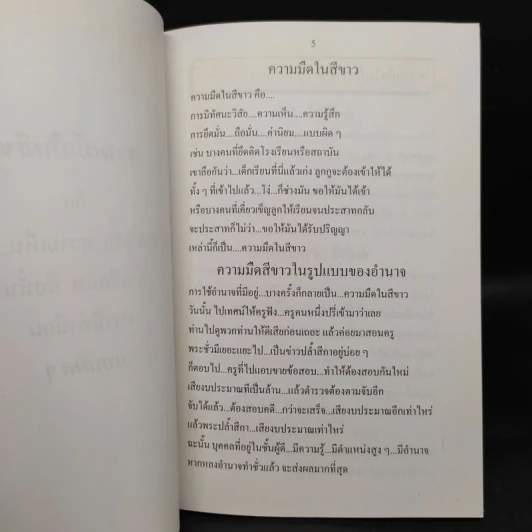 5
ความมืดในสีขาว
ความมืดในสีขาว คือ....
การมีทัศนะวิสัย....ความเห็น....ความรู้สึก
การยึดมั่น....ถือมั่น....ค่านิยม....แบบผิด ๆ
เช่น บางคนที่ยึดติดโรงเรียนหรือสถาบัน
เขาลือกันว่า...เด็กเรียนที่นี่แล้วเก่ง ลูกกูจะต้องเข้าให้ได้
ทั้ง ๆ ที่เข้าไปแล้ว...โง่...ก็ช่างมัน ขอให้มันได้เข้า
หรือบางคนที่เคี่ยวเข็ญลูกให้เรียนจนประสาทกลับ
จะประสาทก็ไม่ว่า...ขอให้มันได้รับปริญญา
เหล่านี้ก็เป็น....ความมืดในสีขาว
ความมืดสีขาวในรูปแบบของอำนาจ
การใช้อำนาจที่มีอยู่...บางครั้งก็กลายเป็น...ความมืดในสีขาว
วันนั้น ไปเทศน์ให้ครูฟัง...ครูคนหนึ่งปรี่เข้ามาว่าเลย
ท่านไปดูพวกท่านให้ดีเสียก่อนเถอะ แล้วค่อยมาสอนครู
พระชั่วมีเยอะแยะไป...เป็นข่าวปล้ำสีกาอยู่บ่อย ๆ
ก็ตอบไป...ครูที่ไปแอบขายข้อสอบ...ทำให้ต้องสอบกันใหม่
เสียงบประมาณทีเป็นล้าน...แล้วตำรวจต้องตามจับอีก
จับได้แล้ว...ต้องสอบคดี...กว่าจะเสร็จ...เสียงบประมาณอีกเท่าไหร่
แล้วพระปล้ำสีกา...เสียงบประมาณเท่าไหร่
ฉะนั้น บุคคลที่อยู่ในชั้นผู้ดี...มีความรู้...มีตำแหน่งสูง ๆ...มีอำนาจ
หากหลงอำนาจทำชั่วแล้ว จะส่งผลมากที่สุด